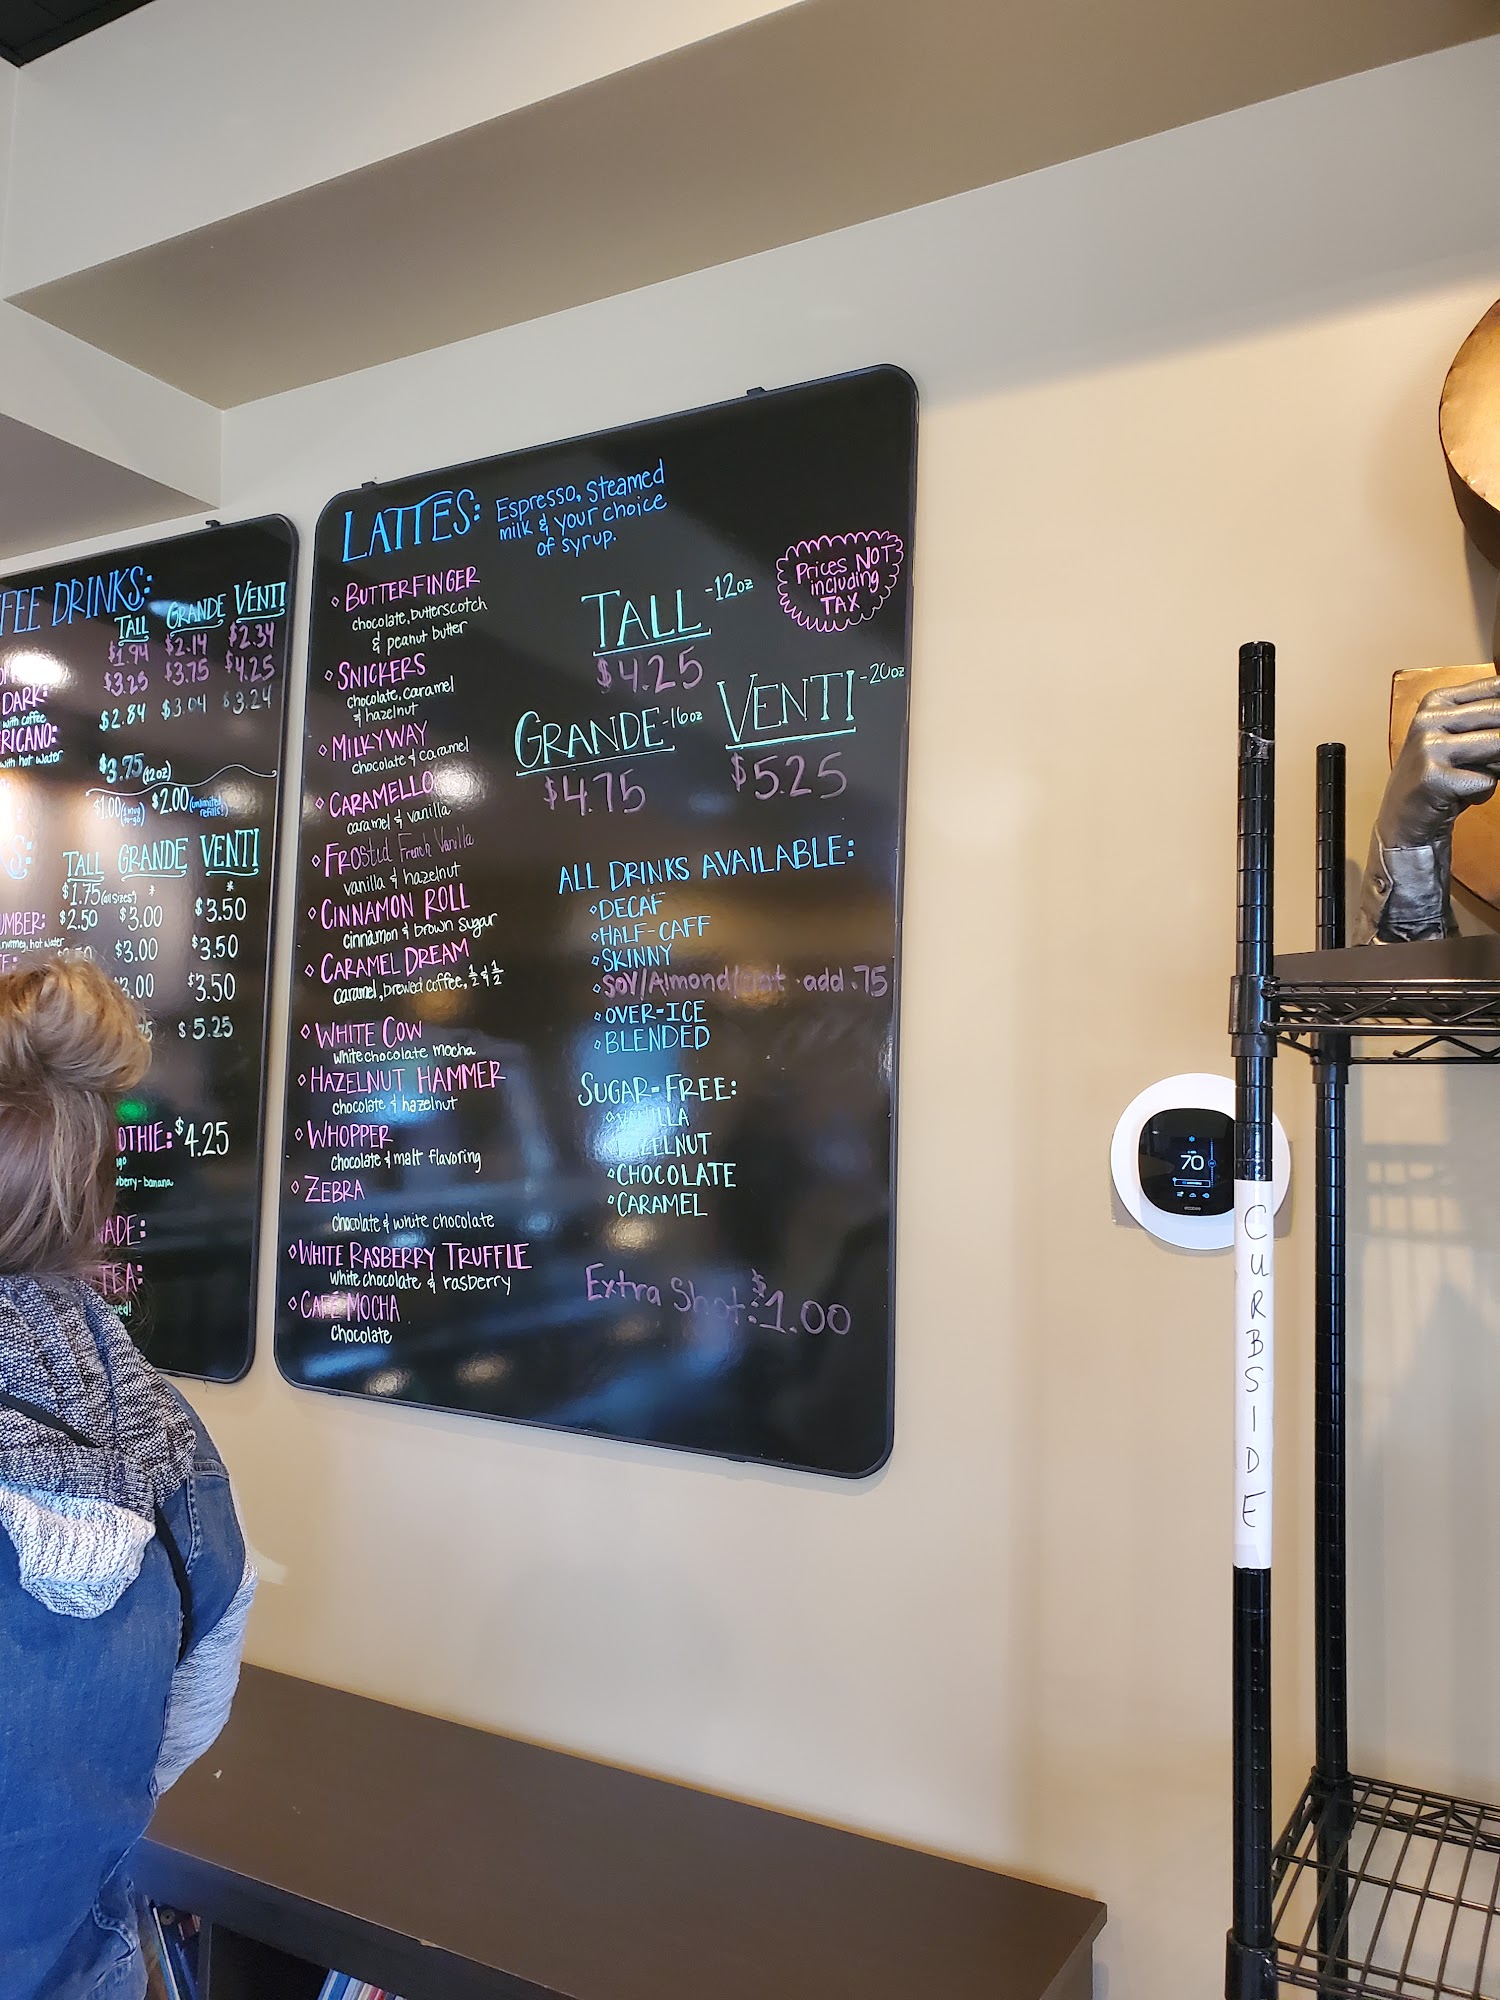 DRINKS:
TALL GRANDE VENTI
$1.94 $2.14 $2.34
$3.25 $3.75 $4.25
DARK:
with coffee
$2.84 $3.04 $3.24
with hot water
$3.75 (12oz)
$1.00 $2.00 (unlimited refills!)
TALL GRANDE VENTI
$1.75 (all sizes*) * *
$2.50 $3.00 $3.50
hot water
$3.00 $3.50
$3.50
$5.25
$4.25
LATTES: Espresso, steamed
milk & your choice
of syrup.
Prices NOT
including
TAX
TALL -12oz
$4.25
GRANDE -16oz
$4.75
VENTI -20oz
$5.25
BUTTERFINGER
chocolate, butterscotch
& peanut butter
SNICKERS
chocolate, caramel
& hazelnut
MILKYWAY
chocolate & caramel
CARAMELLO
caramel & vanilla
FROSted French Vanilla
vanilla & hazelnut
CINNAMON ROLL
cinnamon & brown sugar
CARAMEL DREAM
caramel, brewed coffee, ½ & ½
WHITE COW
white chocolate mocha
HAZELNUT HAMMER
chocolate & hazelnut
WHOPPER
chocolate & malt flavoring
ZEBRA
chocolate & white chocolate
WHITE RASBERRY TRUFFLE
white chocolate & rasberry
CAFÉ MOCHA
chocolate
ALL DRINKS AVAILABLE:
DECAF
HALF-CAFF
SKINNY
SOY/Almond/oat · add .75
OVER-ICE
BLENDED
SUGAR-FREE:
VANILLA
HAZELNUT
CHOCOLATE
CARAMEL
Extra Shot: $1.00
70
CURBSIDE